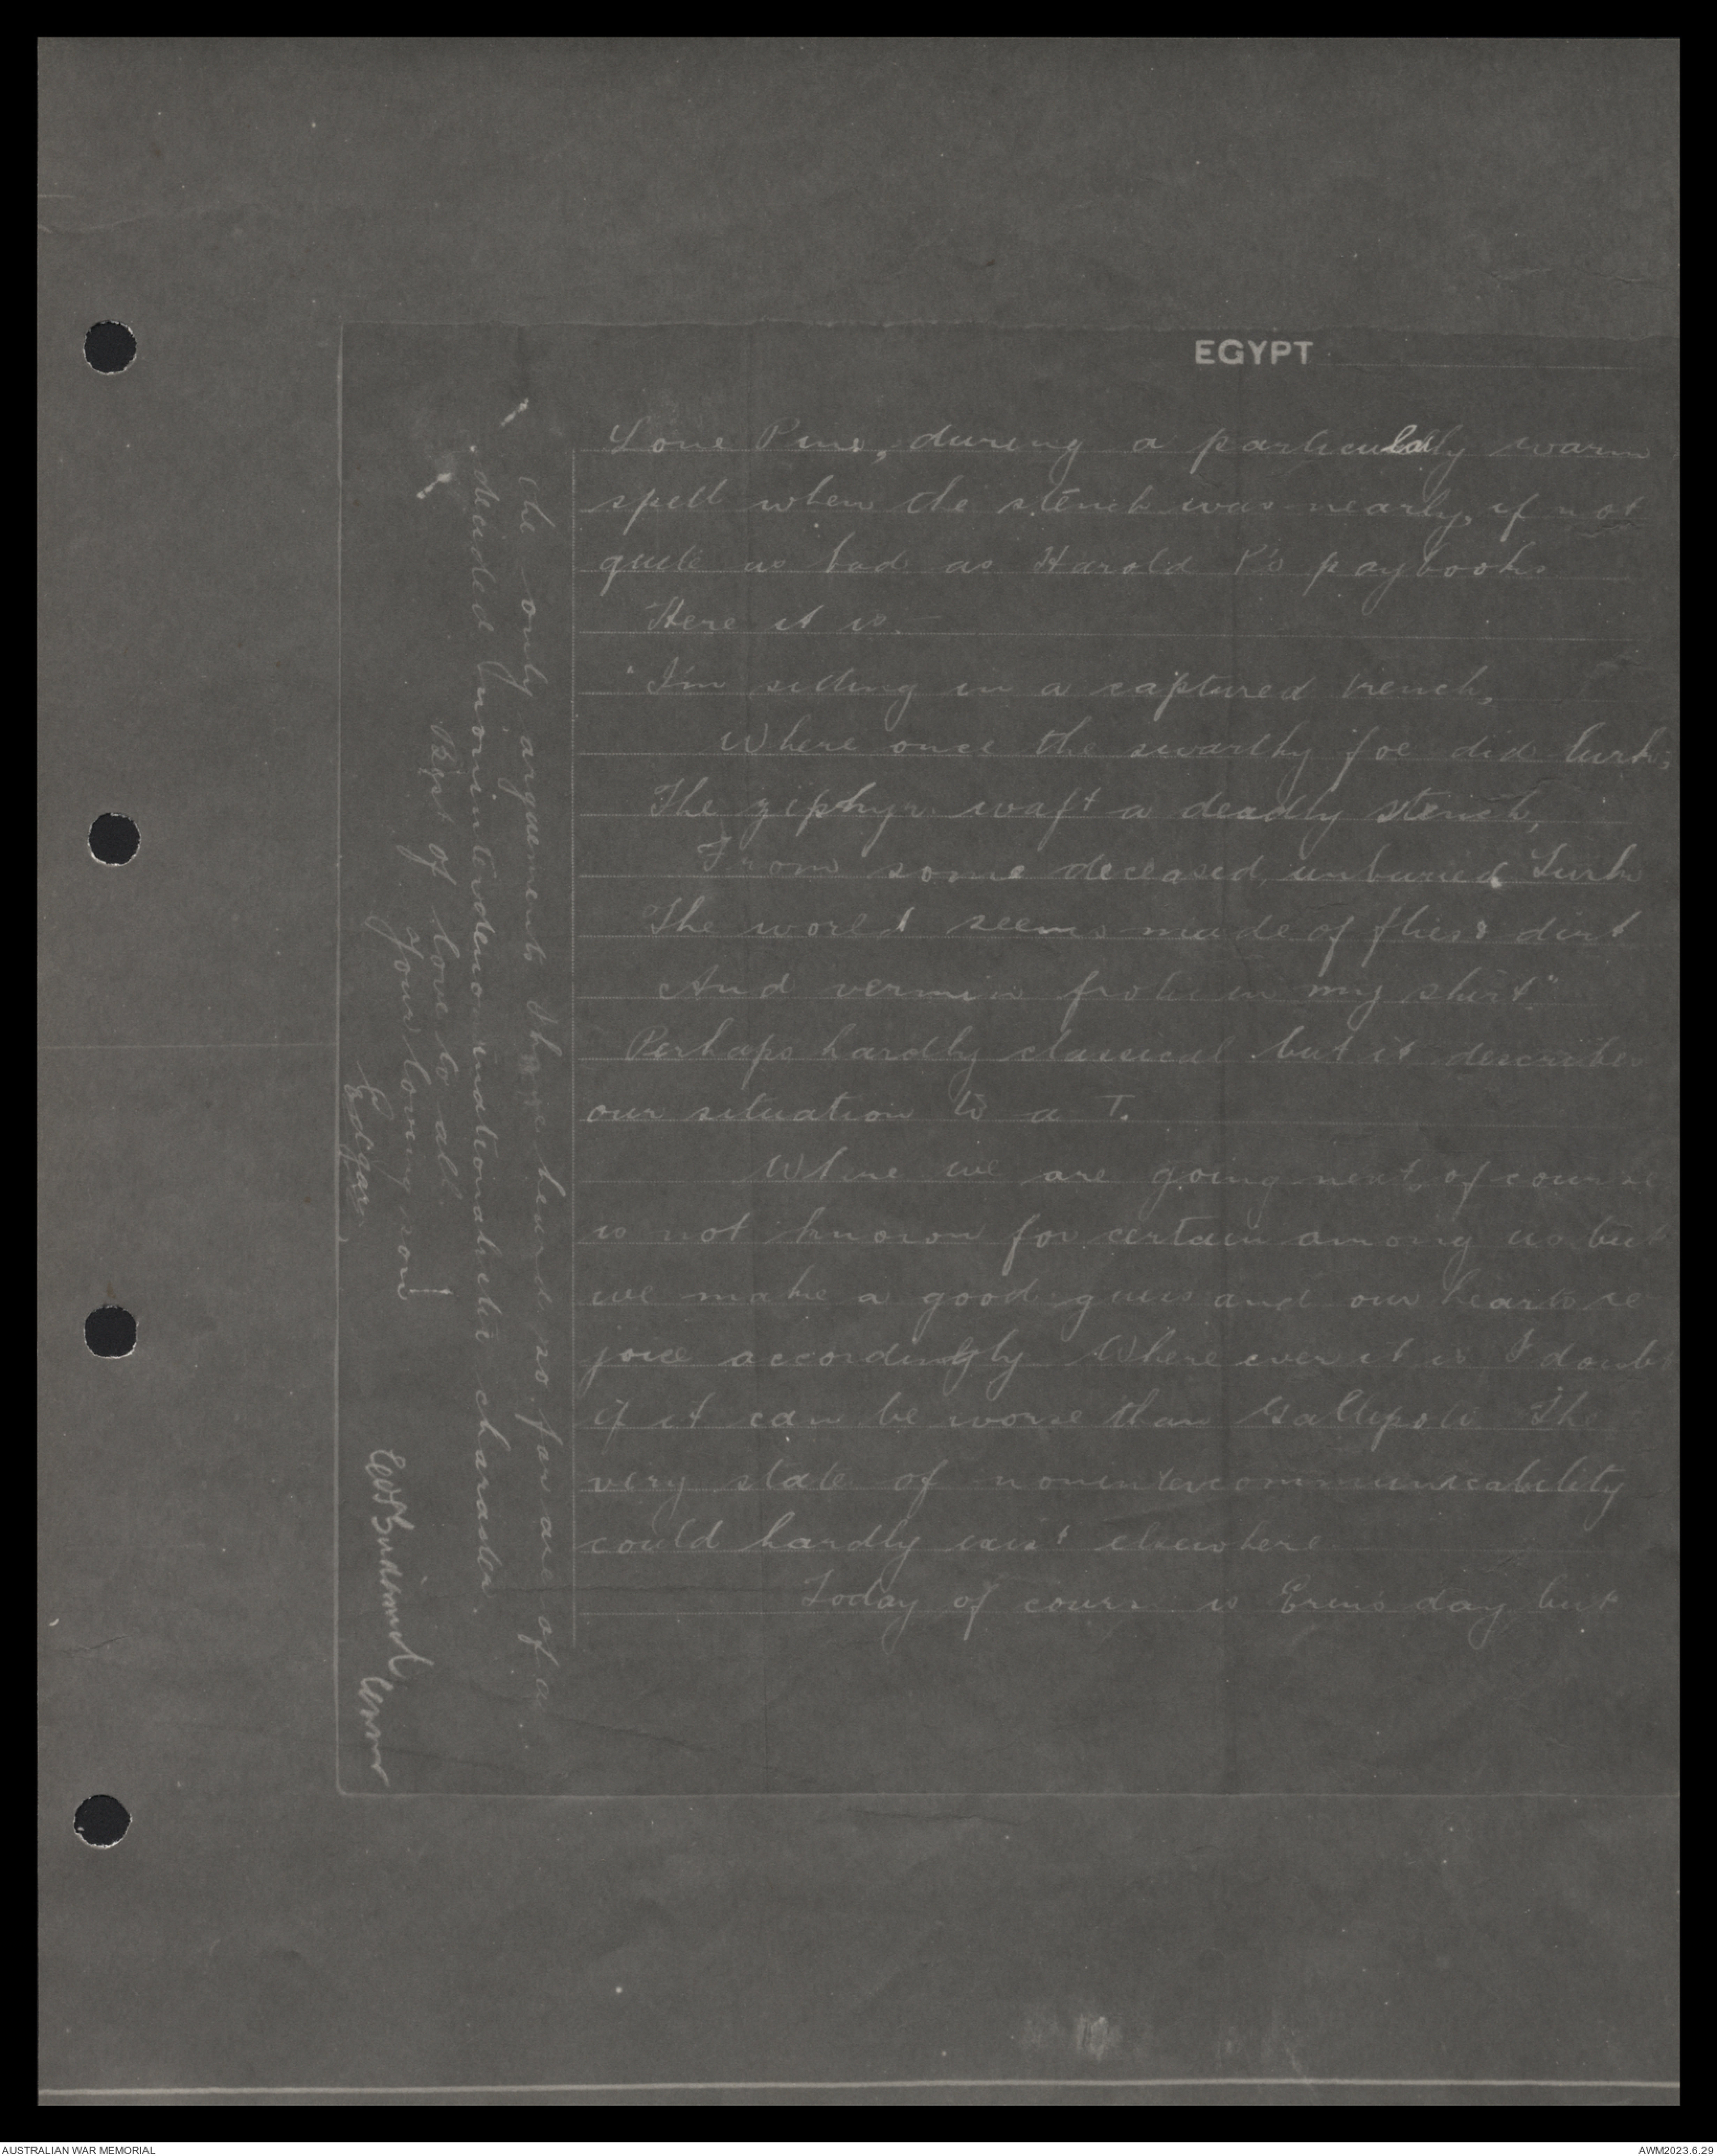 EGYPT
Lone Pine, during a particularly warm
spell when the stench was nearly, if not
quite as bad as Harold P's paybooks.
Here it is:-
"I'm sitting in a captured trench,
Where once the swarthy foe did lurk;
The zephyrs waft a deadly stench,
From some deceased, unburied Turk
The world seems made of flies & dirt
And vermin frolic in my shirt"
Perhaps hardly classical but it describes
our situation to a T.
Where we are going next, of course
is not known for certain among us but
we make a good guess and our hearts re
joice accordingly Where ever it is I doubt
if it can be worse than Gallipoli The
very state of nonintercommunicability
could hardly exist elsewhere
Today of course is Erin's day, but
the only arguments I have heard so far are of a
decided character.
Best of love to all.
Your loving son
Edgar
AUSTRALIAN WAR MEMORIAL
AWM2023.6.29